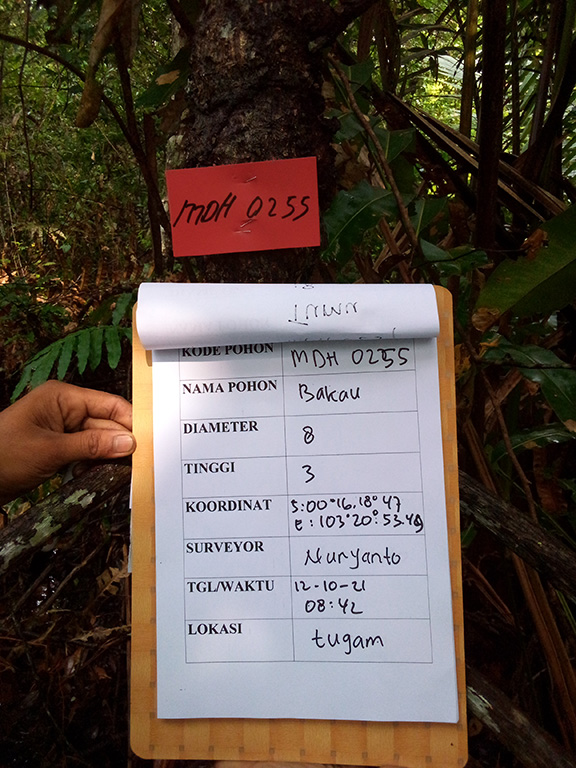 MDH 0255
KODE POHON MDH 0255
NAMA POHON Bakau
DIAMETER 8
TINGGI 3
KOORDINAT S:00°16.18°47
e:103°20:53.49
SURVEYOR Nuryanto
TGL/WAKTU 12-10-21
08:42
LOKASI tugam